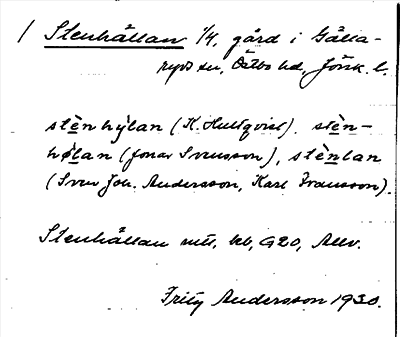 / Stenhällan 1/4, gård i Gälla-
ryds sn, Östbo hd, Jönk. l.
stènhỳlan (K. Hultqvist), stèn-
hølan (Jonas Svensson), stènlan
(Sven Joh. Andersson, Karl Fransson).
Stenhällan mtl, kb, G20, Allv.
Fritz Andersson 1930.